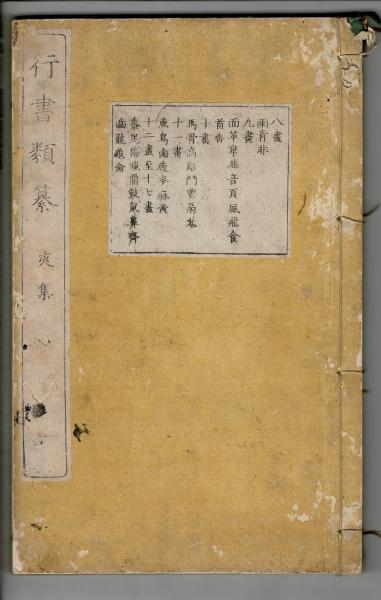 行書類纂 亥集 心
八畫
雨青非
九畫
面革韋韭音頁風飛食
首香
十畫
馬骨高髟鬥鬯鬲鬼
十一畫
魚鳥鹵鹿麥麻黃
十二畫至十七畫
黍黑黹黽鼎鼓鼠鼻齊
齒龍龜龠